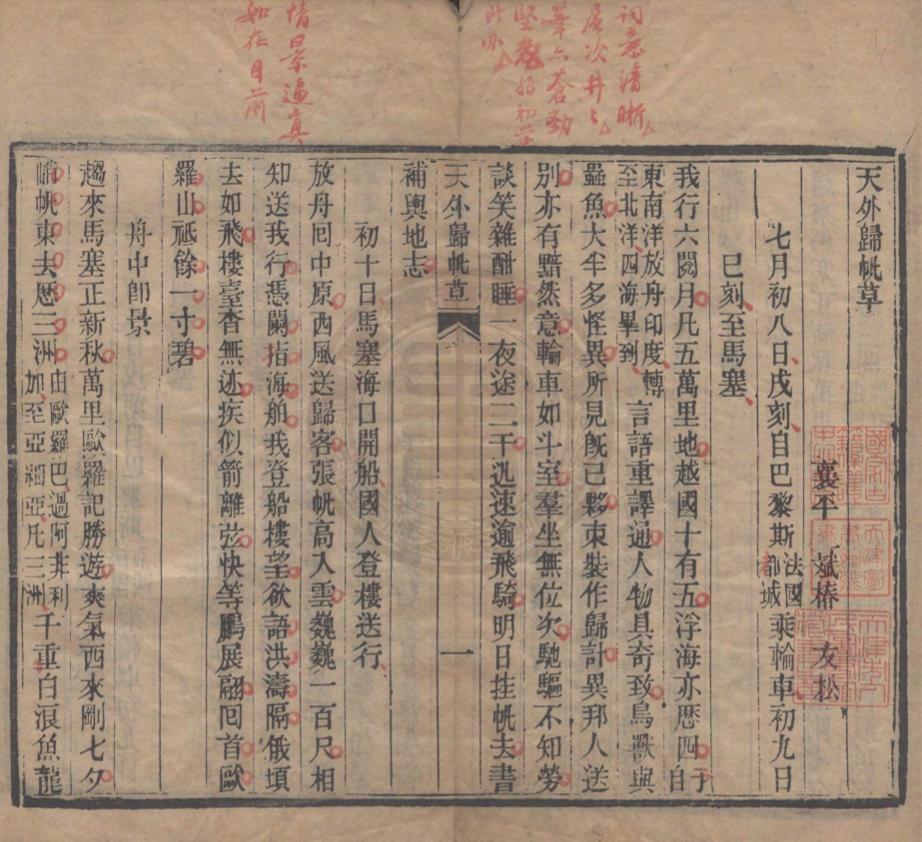 天外歸帆草
襄平 斌椿 友松
七月初八日戌刻自巴黎斯法國都城乘輪車初九日
巳刻至馬塞
我行六閱月凡五萬里地越國十有五浮海亦歷四予自
東南洋放舟印度轉至北洋四海畢到言語重譯通人物具奇致鳥獸與
蟲魚大半多怪異所見旣已夥束裝作歸計異邦人送
別亦有黯然意輪車如斗室羣坐無位次馳驅不知勞
談笑雜酣睡一夜途二千迅速逾飛騎明日挂帆去書
天外歸帆草 一
補輿地志
初十日馬塞海口開船國人登樓送行
放舟囘中原西風送歸客張帆高入雲巍巍一百尺相
知送我行憑闌指海舶我登船樓望欲語洪濤隔俄頃
去如飛樓臺杳無迹疾似箭離弦快等鵬展翮囘首歐
羅山祗餘一寸碧
舟中卽景
趨來馬塞正新秋萬里歐羅記勝遊爽氣西來剛七夕
帆東去歷三洲由歐羅巴過阿非利加至亞細亞凡三洲千重白浪魚龍
詞意清晰
層次井々
筆亦蒼勁
初学
此亦
情景逼真
如在目前